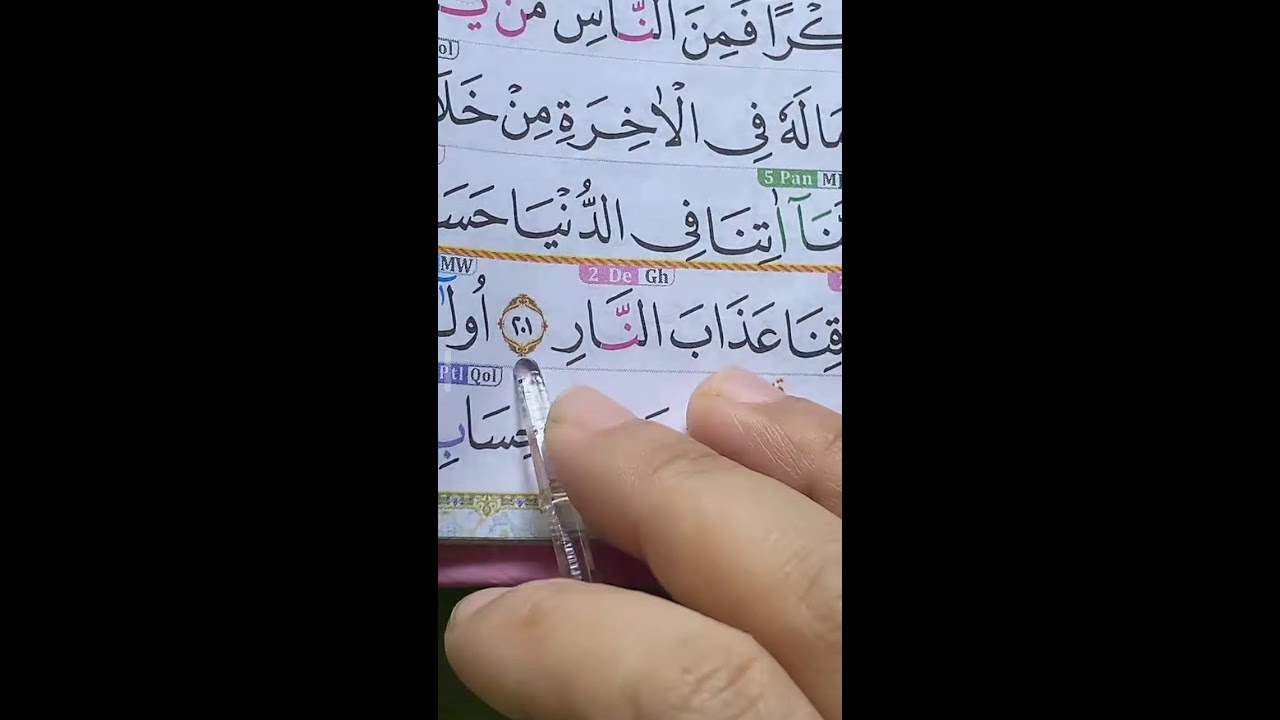 كْرًا فَمِنَ النَّاسِ مَنْ يَ
ol
مَا لَهٗ فِى الْاٰخِرَةِ مِنْ خَلَا
5 Pan M
نَآ اٰتِنَا فِى الدُّنْيَا حَسَ
MW 2 De Gh
قِنَا عَذَابَ النَّارِ ٢٠١ اُولٰۤ
Ptl Qol
حِسَابِ